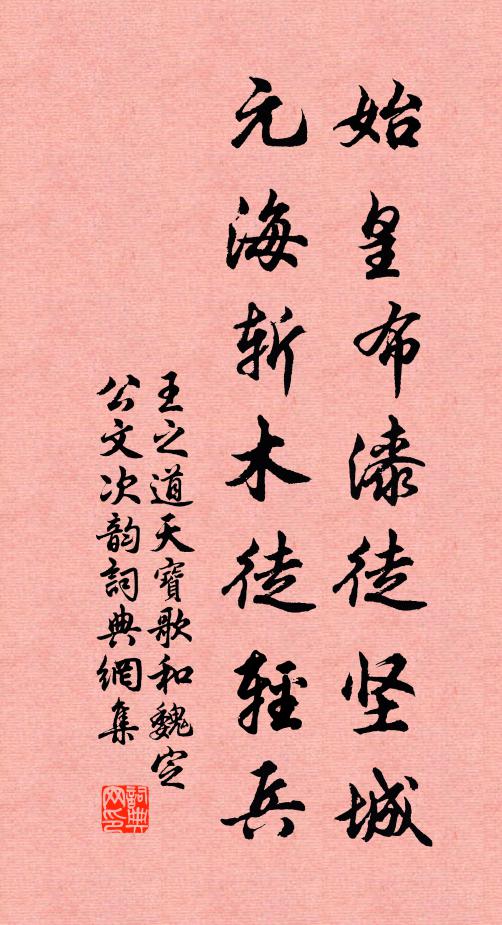 始皇布漆徒坚城
元海斬木徒輕兵
王之道天寶歌和魏定
公文次韵詞典網集
詞典网印